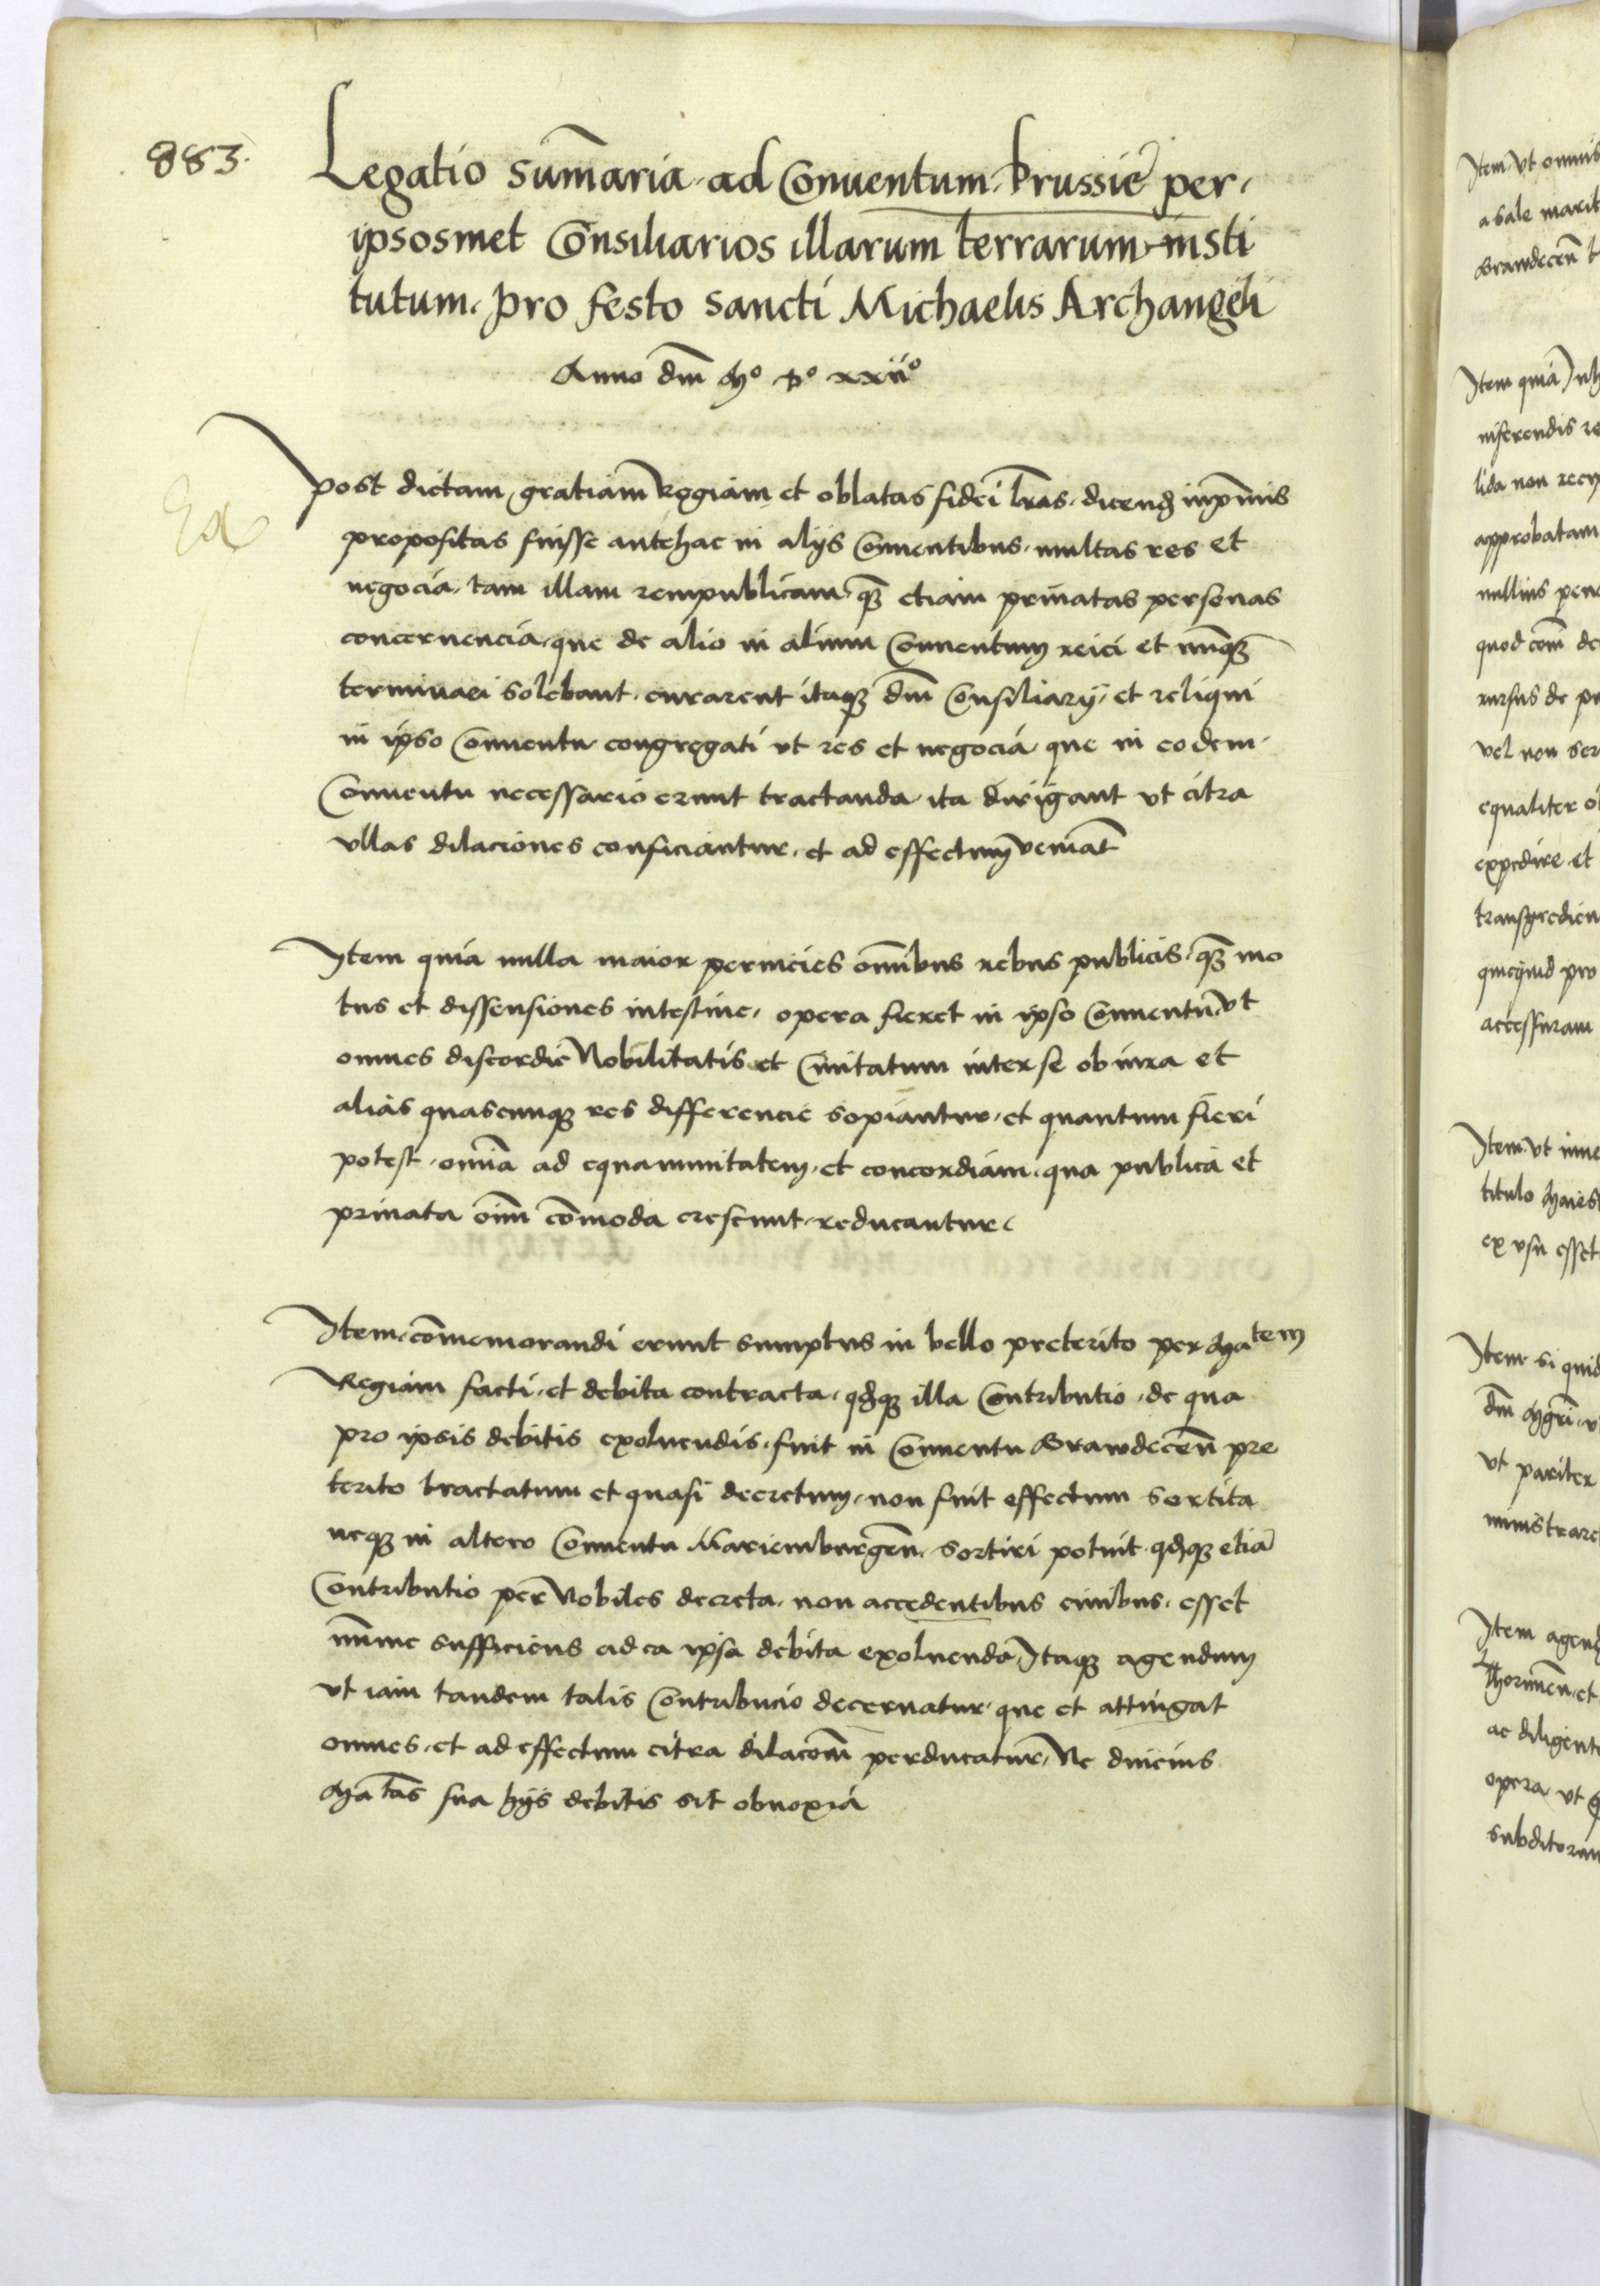 883.
Legatio sum̄aria ad Conuentum Prussie per
ipsosmet Consiliarios illarum terrarum insti
tutum pro festo sancti Michaelis Archangeli
Anno dm̄ Mº Dº xxiiº
Ex
Post dictam gratiam Regiam et oblatas fidei l̄ras dicend̄ inp̄mis
propositas fuisse antehac in alijs Conuentibus multas res et
negocia tam illam rempublicam qȝ etiam priuatas personas
concernencia que de alio in alium Conuentum reici et nūqȝ
terminari solebant curarent itaqȝ dm̄ Consiliarij et reliqui
in ipso Conuentu congregati ut res et negocia que in eodem
Conuentu necessario erunt tractanda ita dirigant ut citra
vllas dilaciones conficiantur et ad effectum veniāt
Item quia nulla maior pernicies om̄ibus rebus publicis qȝ mo
tus et dissensiones intestine opera fieret in ipso Conuentu vt
omnes discordie Nobilitatis et Ciuitatum inter se ob iura et
alias quascunqȝ res differencie sopiantur et quantum fieri
potest om̄ia ad equanimitatem et concordiam qua publica et
priuata oīm cōmoda crescunt reducantur
Item cōmemorandi erunt sumptus in bello preterito per Matem
Regiam facti et debita contracta qđqȝ illa Contributio de qua
pro ipsis debitis exoluendis fuit in Conuentu Grawdecen̄ pre
terito tractatum et quasi decretum non fuit effectum sortita
neqȝ in altero Conuentu Mariemburgen̄ sortiri potuit qđqȝ etiā
Contributio per Nobiles decreta non accedentibus ciuibus esset
minime sufficiens ad ea ipsa debita exoluenda Itaqȝ agendum
vt iam tandem talis Contribucio decernatur que et attingat
omnes et ad effectum citra dilacōm perducatur Ne diucius
Matas sua hijs debitis sit obnoxia
Item Vt omnis
a sale marit
Grawdecen̄ t
Item quia
inferendis re
lida non recip
approbatam
nullius pen
quod com̄ de
rursus de
vel non ser
equaliter
expedire et
transgredien
quicquid pro
accessuram
Item Vt
titulo Maiest
ex vsu esset
Item si quid
dm̄
Vt pariter
ministrare
Item agend
Thorunen̄ et
ac diligent
opera vt
subditorum